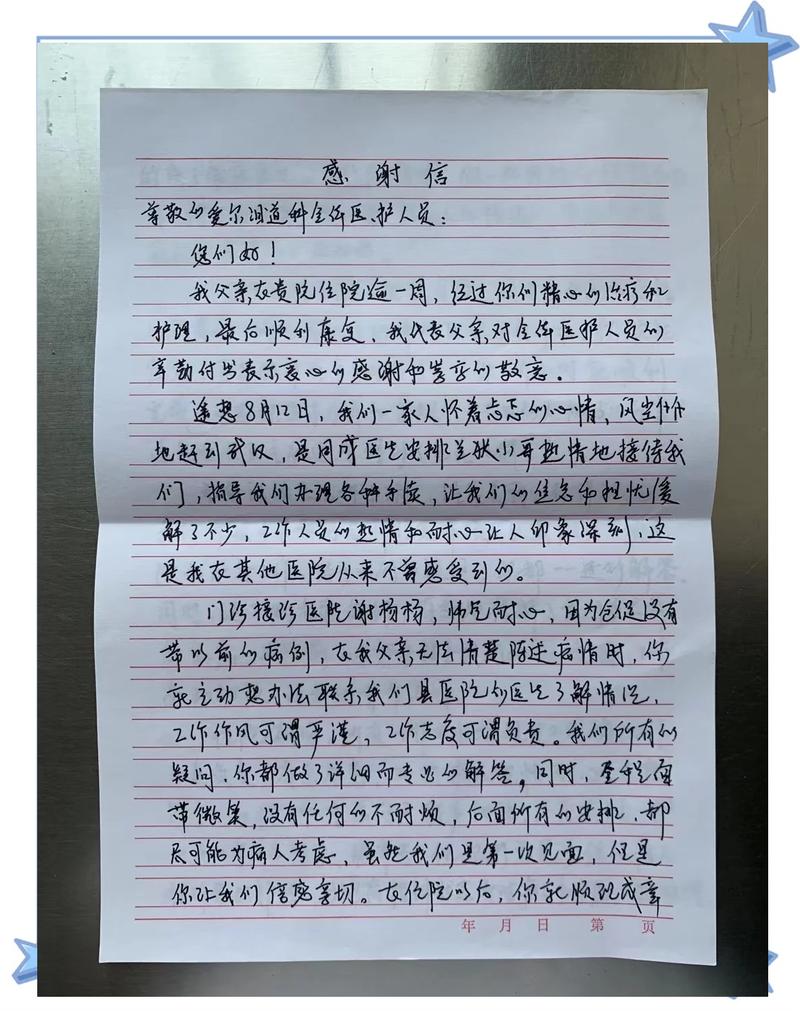 感谢信
尊敬的爱尔泪道科全体医护人员：
您们好！
我父亲在贵院住院逾一周，经过你们精心的治疗和
护理，最后顺利康复，我代表父亲对全体医护人员的
辛勤付出表示衷心的感谢和崇高的敬意。
遥想8月12日，我们一家人怀着忐忑的心情，风尘仆仆
地赶到武汉，是周成医生安排兰狄小哥热情地接待我
们，指导我们办理各种手续，让我们的焦急和担忧缓
解了不少，工作人员的热情和耐心让人印象深刻，这
是我在其他医院从来不曾感受到的。
门诊接诊医院谢杨杨，帅气耐心，因为仓促没有
带以前的病例，在我父亲无法清楚陈述病情时，你
就主动想办法联系我们县医院的医生了解情况，
工作作风可谓严谨，工作态度可谓负责。我们所有的
疑问，你都做了详细而专业的解答，同时，全程面
带微笑，没有任何的不耐烦，后面所有的安排，都
尽可能为病人考虑，虽然我们是第一次见面，但是
你让我们倍感亲切。在住院以后，你就顺理成章
年 月 日 第 页